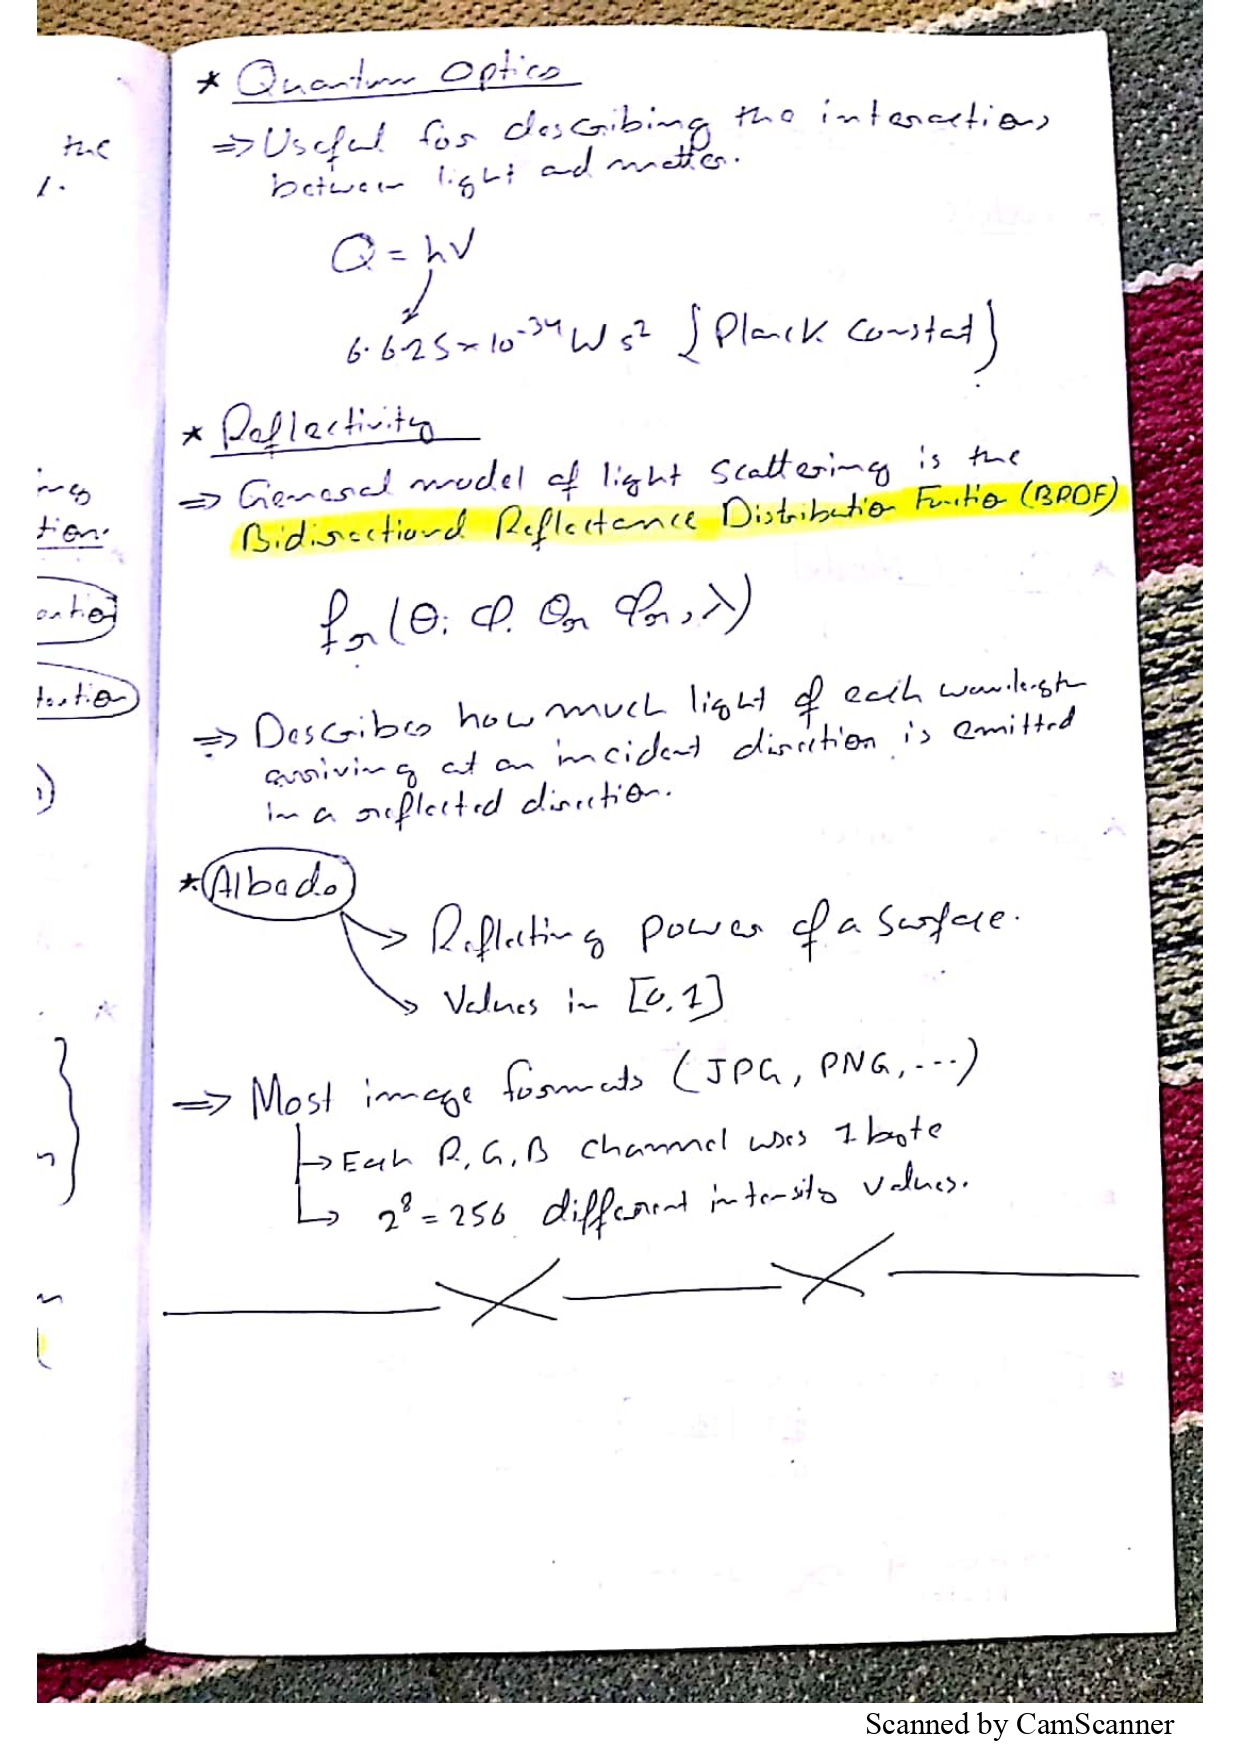 * Quantum Optics
⇒ Useful for describing the interactions
between light and matter.
Q = hν
6.625 × 10^-34 W s^2 {Planck Constat}
* Reflectivity
⇒ General model of light scattering is the
Bidirectional Reflectance Distribution Functio (BRDF)
f_r(θi φi θr φr, λ)
⇒ Describes how much light of each wavelength
arriving at an incident direction is emitted
in a reflected direction.
* Albedo
→ Reflecting power of a surface.
→ Values in [0,1]
⇒ Most image formats (JPG, PNG, ...)
→ Each R, G, B channel uses 1 byte
→ 2^8 = 256 different intensity values.
the
tion.
Scanned by CamScanner